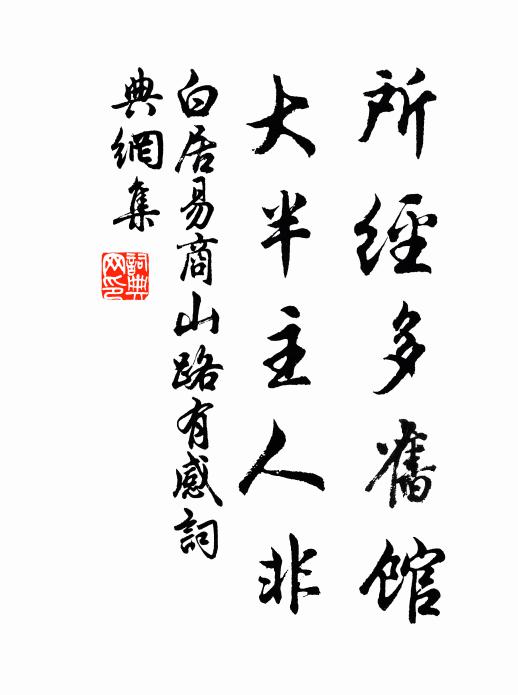 所經多舊館
大半主人非
白居易商山路有感詞
典網集
詞典網印